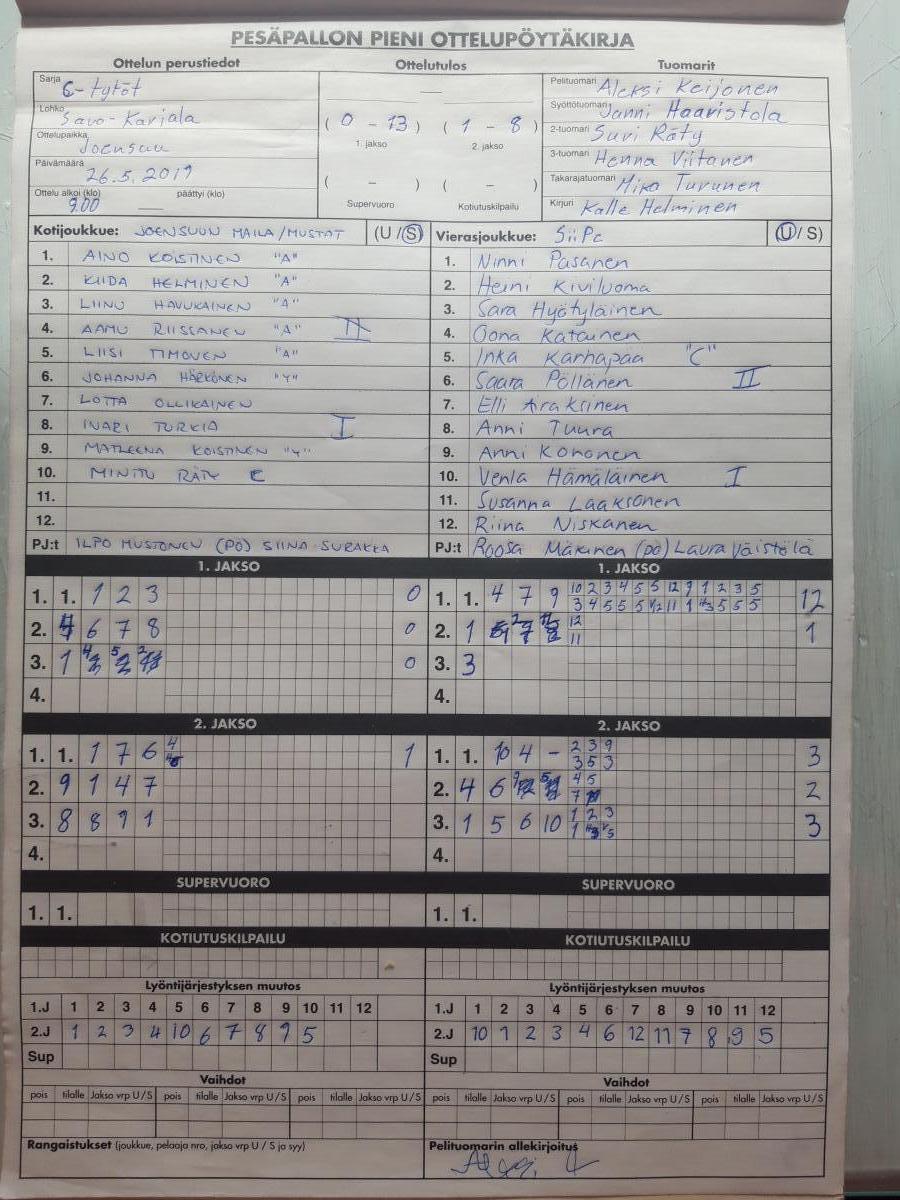 PESÄPALLON PIENI OTTELUPÖYTÄKIRJA
Ottelun perustiedot
Sarja C-tytöt
Lohko Savo-Karjala
Ottelupaikka Joensuu
Päivämäärä 26.5.2019
Ottelu alkoi (klo) 9.00 päättyi (klo) —
Ottelutulos
—
( 0 - 13 ) ( 1 - 8 )
1. jakso 2. jakso
( - ) ( - )
Supervuoro Kotiutuskilpailu
Tuomarit
Pelituomari Aleksi Keijonen
Syöttötuomari Janni Haaristola
2-tuomari Suvi Räty
3-tuomari Henna Viitanen
Takarajatuomari Mika Turunen
Kirjuri Kalle Helminen
Kotijoukkue: JOENSUUN MAILA/MUSTAT (U/S)
1. AINO KOISTINEN "A"
2. KIIDA HELMINEN "A"
3. LIINU HAVUKAINEN "A"
4. AAMU RIISSANEN "A" II
5. LIISI TIMONEN "A"
6. JOHANNA HÄRKÖNEN "Y"
7. LOTTA OLLIKAINEN
8. INARI TURKIA I
9. MATLEENA KOISTINEN "Y"
10. MINTTU RÄTY C
11.
12.
PJ:t ILPO MUSTONEN (PÖ) SIINA SURAKKA
Vierasjoukkue: SiiPe (U/S)
1. Ninni Pasanen
2. Heini Kiviluoma
3. Sara Hyötyläinen
4. Oona Katainen
5. Inka Karhapää "C"
6. Saara Pöllänen II
7. Elli Airaksinen
8. Anni Tuura
9. Anni Kononen
10. Venla Hämäläinen I
11. Susanna Laaksonen
12. Riina Niskanen
PJ:t Roosa Mäkinen (pö) Laura Väistölä
1. JAKSO
1. 1. 1 2 3 0
2. 6 7 8 0
3. 1 0
4.
1. JAKSO
10 2 3 4 5 5 12 9 1 2 3 5
1. 1. 4 7 9 12
2. 1 12 1
11
3. 3
4.
2. JAKSO
1. 1. 1 7 6 4 1
2. 9 1 4 7
3. 8 8 9 1
4.
2. JAKSO
2 3 9
1. 1. 10 4 - 3
3 5 3
2. 4 6 4 5 2
7
3. 1 5 6 10 1 2 3 3
4.
SUPERVUORO
1. 1.
SUPERVUORO
1. 1.
KOTIUTUSKILPAILU
KOTIUTUSKILPAILU
Lyöntijärjestyksen muutos
1.J 1 2 3 4 5 6 7 8 9 10 11 12
2.J 1 2 3 4 10 6 7 8 9 5
Sup
Lyöntijärjestyksen muutos
1.J 1 2 3 4 5 6 7 8 9 10 11 12
2.J 10 1 2 3 4 6 12 11 7 8 9 5
Sup
Vaihdot
pois tilalle Jakso vrp U/S pois tilalle Jakso vrp U/S pois tilalle Jakso vrp U/S
Vaihdot
pois tilalle Jakso vrp U/S pois tilalle Jakso vrp U/S pois tilalle Jakso vrp U/S
Rangaistukset (joukkue, pelaaja nro, jakso vrp U / S ja syy)
Pelituomarin allekirjoitus